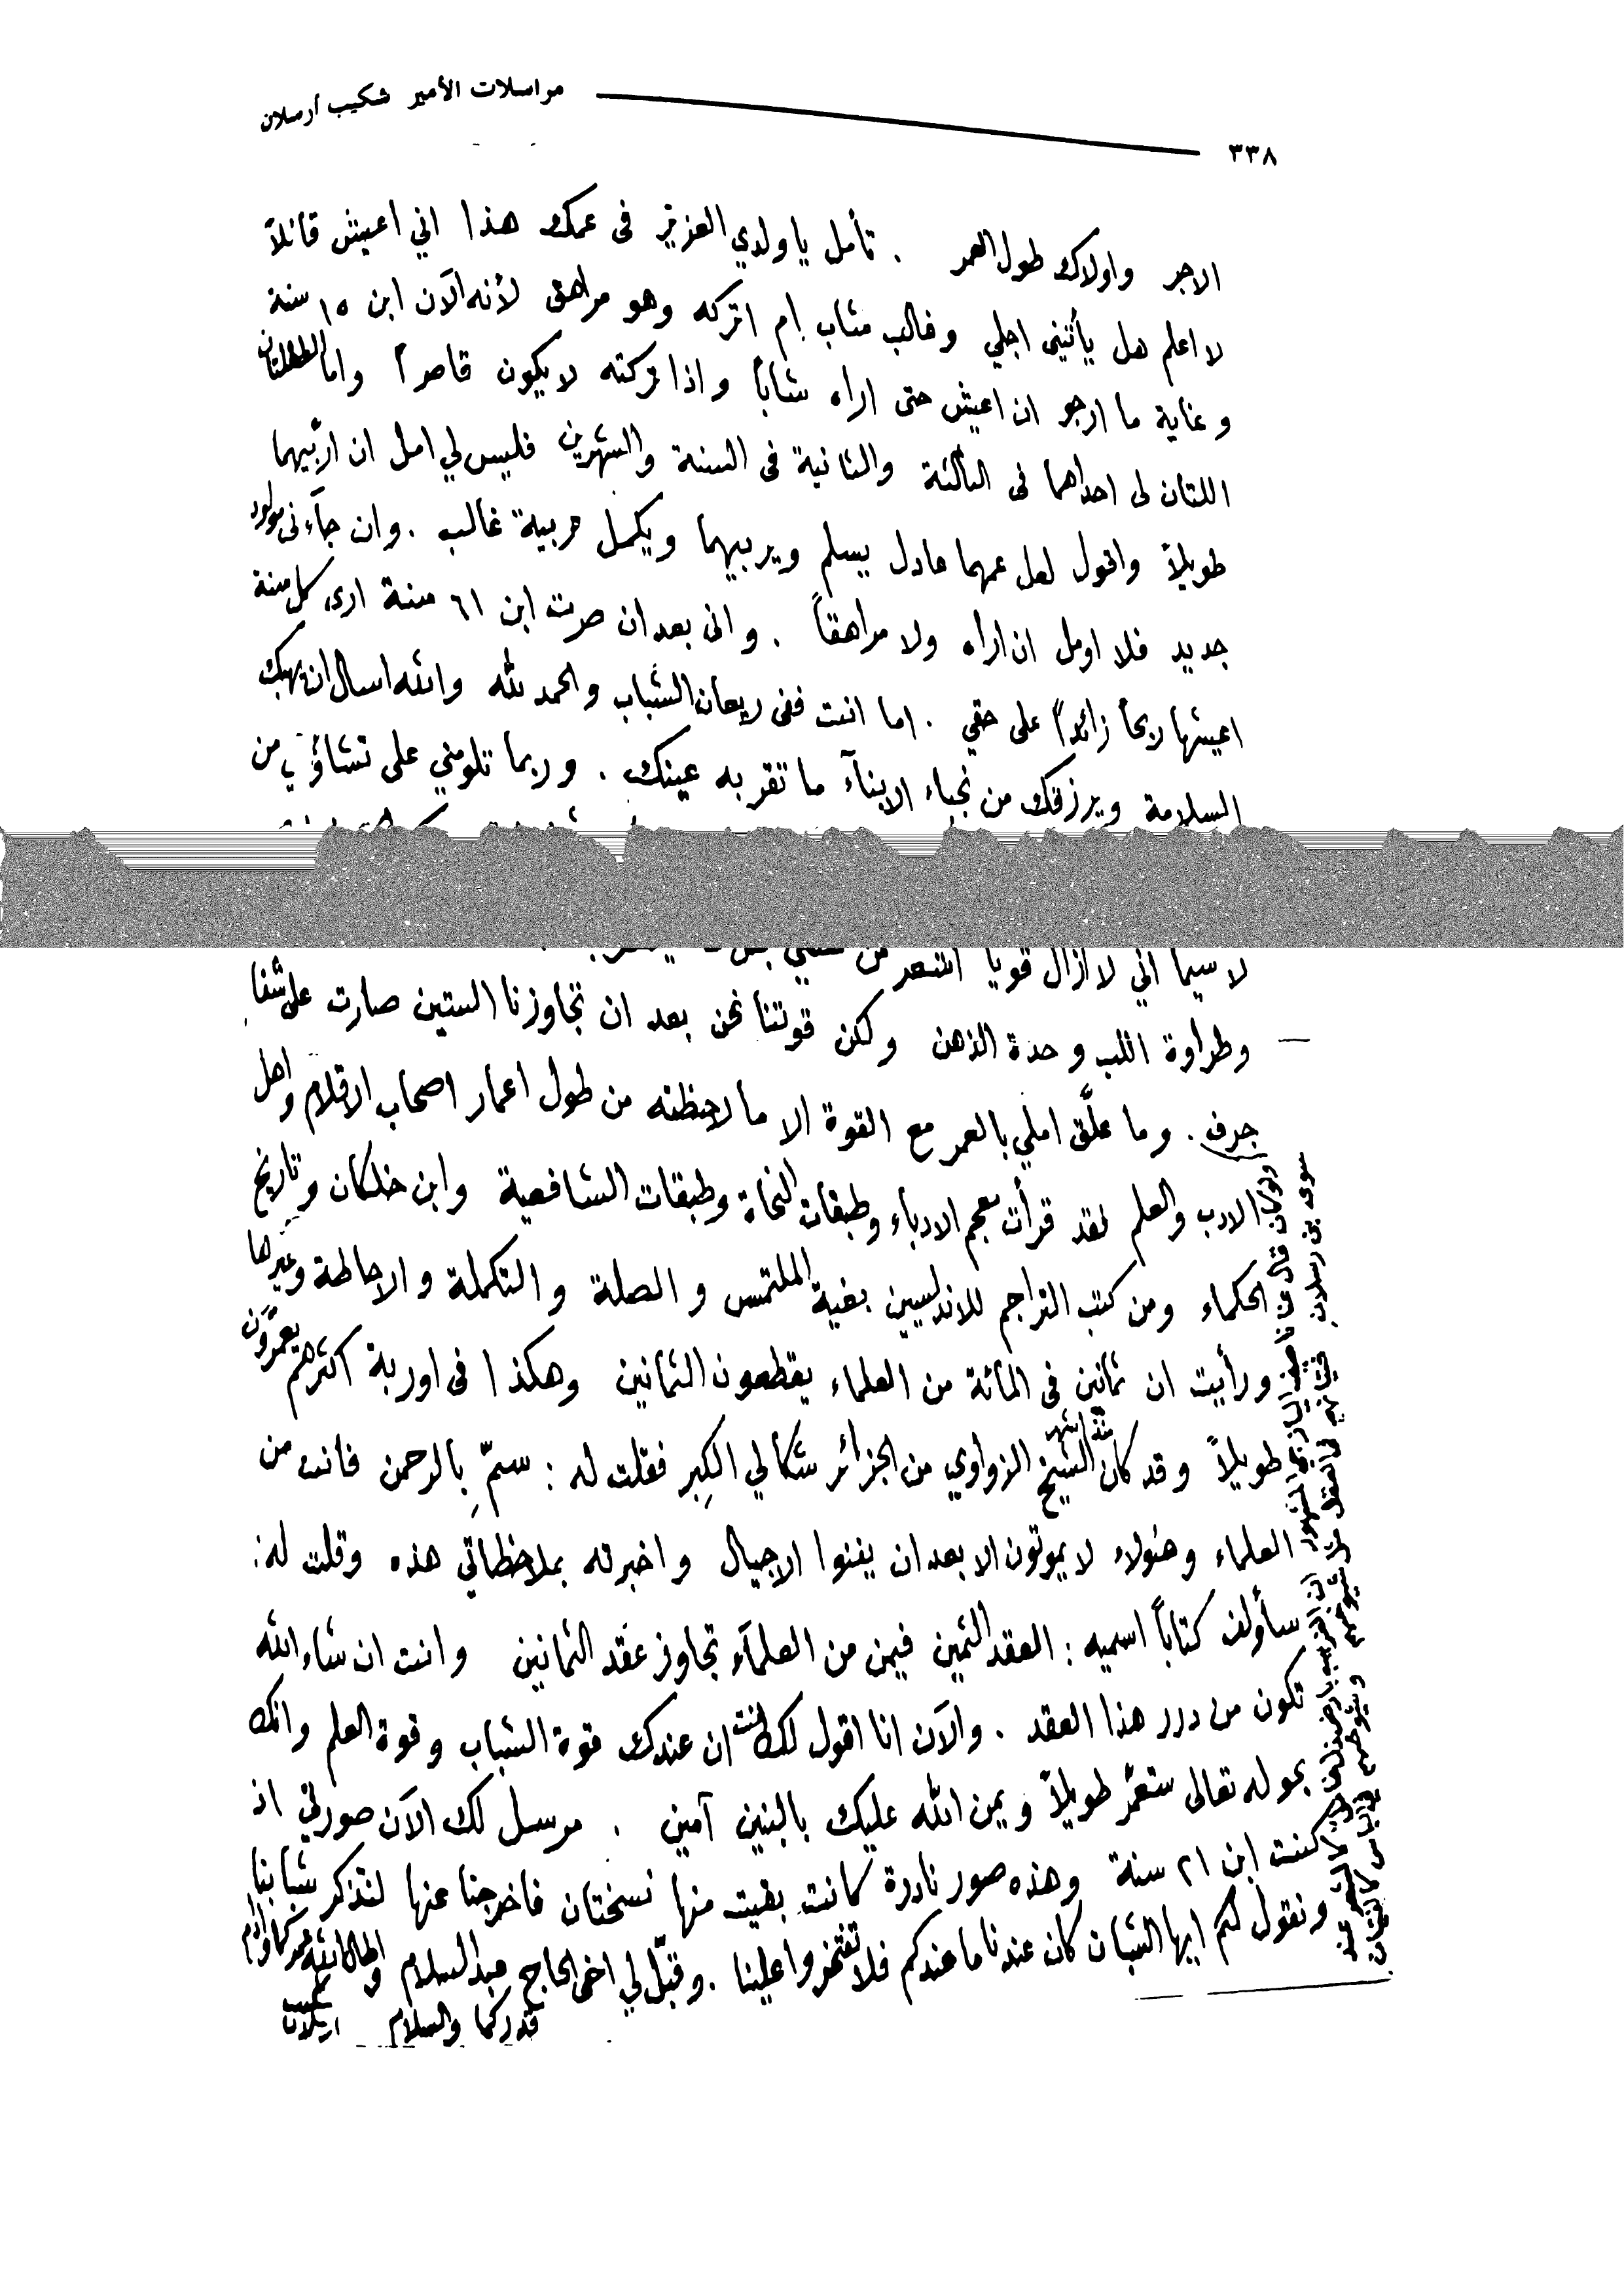 مراسلات الأمير شكيب أرسلان
٣٣٨
الاجر واولاك طول العمر . تأمل يا ولدي العزيز فى عمك هذا اني اعيش قائلاً
لا اعلم هل يأتينى اجلي وغالب شاب ام اتركه وهو مراهق لأنه الآن ابن ١٥ سنة
وغاية ما ارجو ان اعيش حتى اراه شاباً واذا تركته لا يكون قاصراً واما الطفلتان
اللتان لى احداهما فى الثالثة والثانية فى السنة والشهرين فليس لي امل ان اربّيهما
طويلاً واقول لعل عمهما عادل يسلم ويربيهما ويكمل تربية غالب . وان جآءنى مولود
جديد فلا اومل ان اراه ولا مراهقاً . وانى بعد ان صرت ابن ٦١ سنة ارى كل سنة
اعيشها ربحاً زائداً على حقي . اما انت ففى ريعان الشباب والحمد لله والله اسال ان يهبك
السلامة ويرزقك من نجباء الابنآء ما تقر به عينك . وربما تلومني على تشاؤمي من
لا سيما اني لا ازال قويا اشعر من
وطراوة القلب وحدة الذهن ولكن قوتنا نحن بعد ان تجاوزنا الستين صارت على شفا
جرف . وما علّق املي بالعمر مع القوة الا ما لاحظته من طول اعمار اصحاب الاقلام واهل
الادب والعلم لقد قرأت معجم الادباء وطبقات النحاة وطبقات الشافعية وابن خلكان وتاريخ
الحكماء ومن كتب التراجم للاندلسيين بغية الملتمس والصلة والتكملة والاحاطة وغيرها
ورأيت ان ثمانين فى المائة من العلماء يقطعون الثمانين وهكذا فى اوربة اكثرهم يعمرّون
طويلاً وقد كان منذ اشهر الشيخ الزواوي من الجزائر شكا لي الكِبر فقلت له : سمّ بِالرحمن فانت من
العلماء وهٔولاء لا يموتون الا بعد ان يفنوا الاجيال واخبرته بملاحظاتي هذه وقلت له:
سأولف كتاباً اسميه : العقد الثمين فيمن من العلمآء تجاوز عقد الثمانين وانت ان شاء الله
تكون من درر هذا العقد . والآن انا اقول لك انت ان عندك قوة الشباب وقوة العلم وانك
بحوله تعالى ستعمّر طويلاً ويمن الله عليك بالبنين آمين . مرسل لك الآن صورتي اذ
كنت ابن ٢١ سنة وهذه صور نادرة كانت بقيت منها نسختان فاخرجنا عنها لنتذكر شبابنا
ونقول لكم ايها الشبان كان عندنا ما عندكم فلا تفتخروا علينا . وقبّل لي اخى الحاج عبد السلام واطال الله عمركما وادام
قدركما والسلام شكيب ارسلان